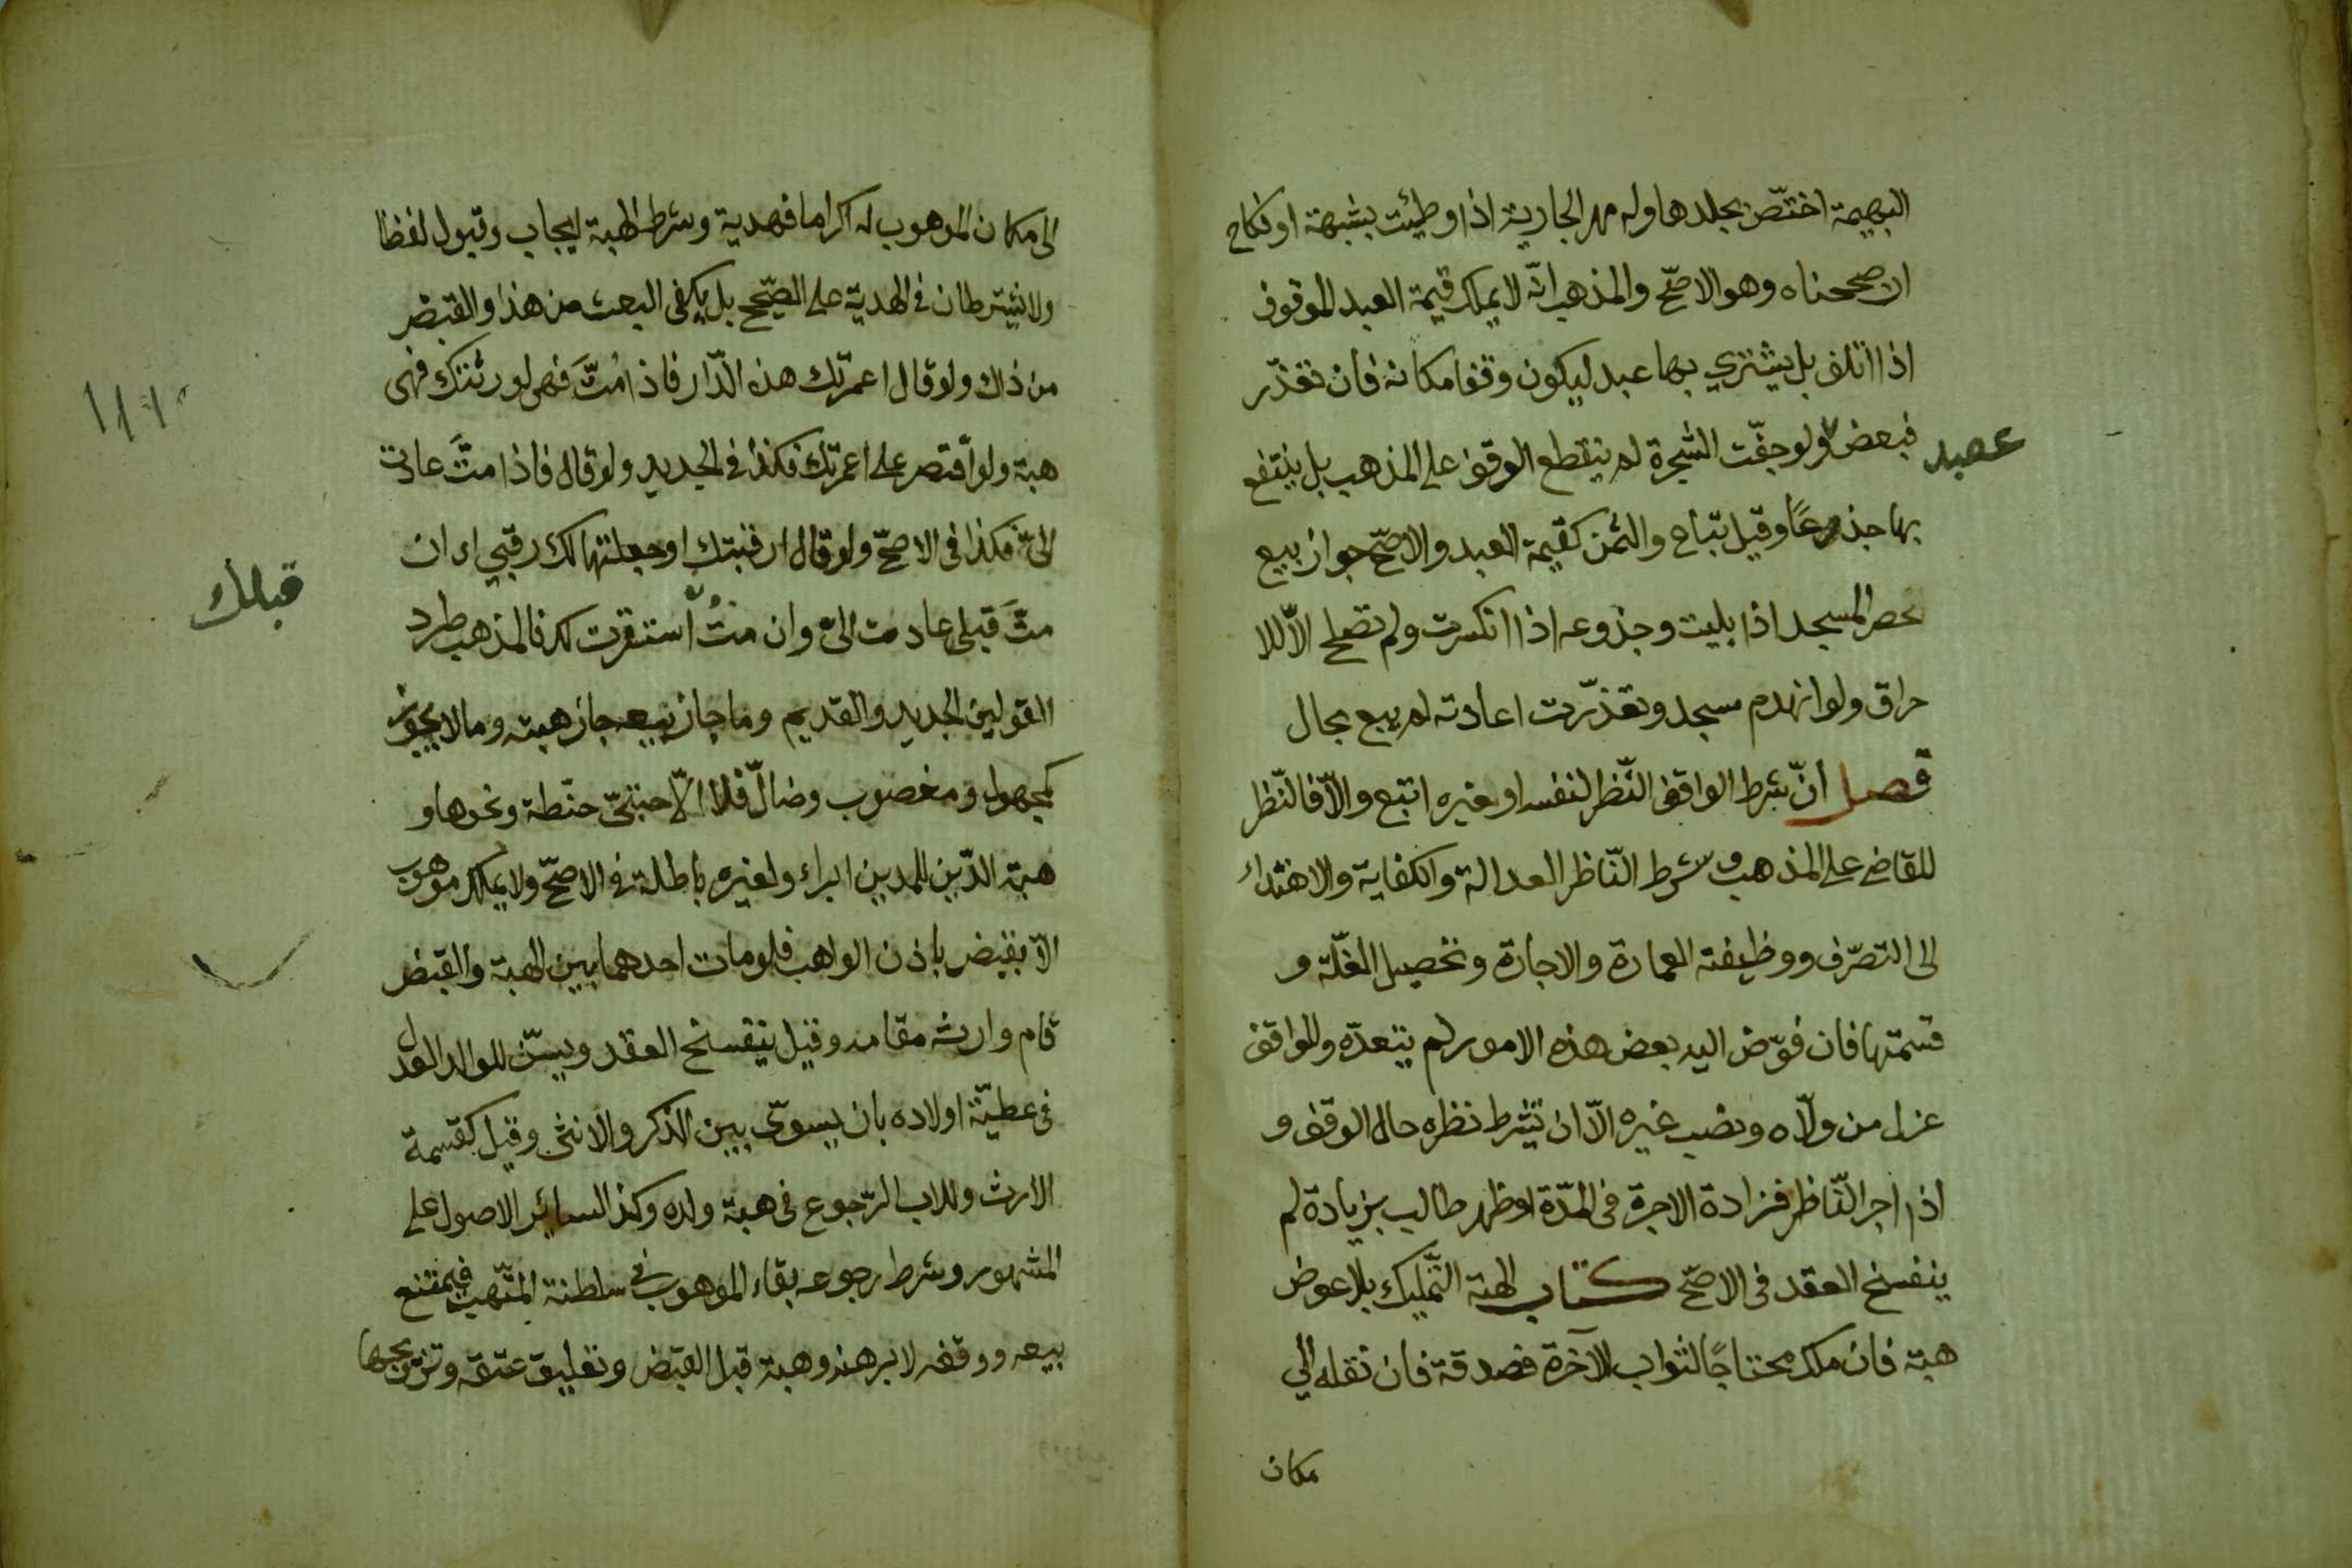 البهيمة اختصّ بجلدها وله مهر الجارية اذا وطيئت بشبهة او نكاح
ان صححناه وهو الاصحّ والمذهب انّه لا يملك قيمة العبد الموقوف
اذا اتلف بل يشتري بها عبد ليكون وقفا مكانه فان تعذّر
فبعض ولو جفّت الشجرة لم ينقطع الوقف على المذهب بل ينتفع
عبد
بها جذعًا وقيل تباع والثمن كقيمة العبد والاصحّ جواز بيع
حصر المسجد اذا بليت وجذوعه اذا انكسرت ولم تصلح الاّ للا
حراق ولو انهدم مسجد وتعذّرت اعادته لم يبع بحال
فصل انّ شرط الواقف النّظر لنفسه او غيره اتبع والاّ فالنّظر
للقاضى على المذهب وشرط النّاظر العدالة والكفاية والاهتداء
الى التصرّف ووظيفته العمارة والاجارة وتحصيل الغلّة و
قسمتها فان فوّض اليه بعض هذه الامور لم يتعدّه وللواقف
عزل من ولاّه ونصب غيره الاّ ان يشرط نظره حال الوقف و
اذا اجر النّاظر فزادة الاجرة فى المدّة او ظهر طالب بزيادة لم
ينفسخ العقد فى الاصحّ كتاب الهبة التّمليك بلا عوض
هبة فان ملك محتاجًا لثواب الآخرة فصدقة فان نقله الي
مكان
الى مكان الموهوب له اكراما فهدية وشرط الهبة ايجاب وقبول لفظا
ولا يشترطان فى الهدية على الصّحيح بل يكفى البعث من هذا والقبض
من ذاك ولو قال اعمرتك هذه الدّار فاذا متَّ فهى لورثتك فهى
هبة ولو اقتصر على اعمرتك فكذا فى الجديد ولو قال فاذا متَّ عادت
الىّ فكذا فى الاصحّ ولو قال ارقبتك او جعلتها لك رقبي اى ان
متَّ قبلى عادت الىّ وان متُّ استقرت لك فالمذهب طرد
قبلك
القولين الجديد والقديم وما جاز بيعه جاز هبته وما لا يجوز
كمجهول ومغصوب وضالّ فلا الاّ حبتىّ حنّطة ونحوها و
هبة الدّين للمدين ابراء ولغيره باطلة فى الاصحّ ولا يملك موهوب
الاّ بقبض باذن الواهب فلو مات احدهما بين الهبة والقبض
قام وارثه مقامه وقيل ينفسخ العقد ويسنّ للوالد العدل
فى عطيّة اولاده بان يسوّى بين الذكر والانثى وقيل كقسمة
الارث وللاب الرّجوع فى هبة ولده وكذا لسائر الاصول على
المشهور وشرط رجوعه بقاء الموهوب فى سلطنة المتّهب فيمتنع
بيعه ووقفه لا برهنه وهبة قبل القبض وتعليق عتقه وتزويجها